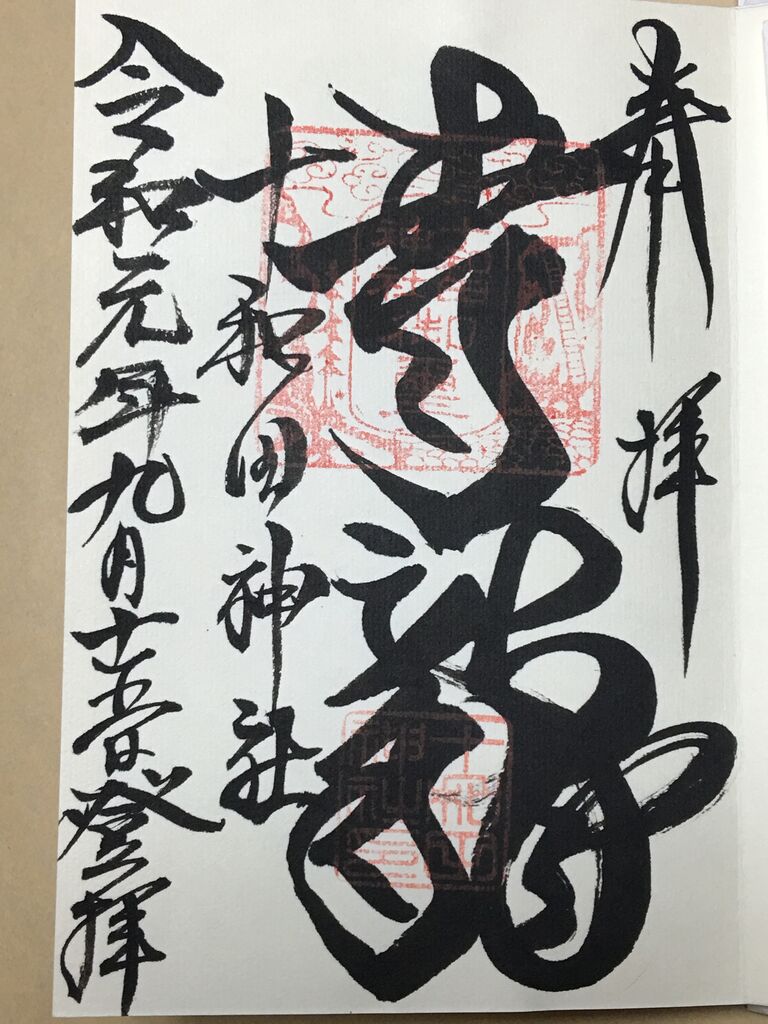 奉拝
青龍
十和田神社
令和元年九月十五日登拝